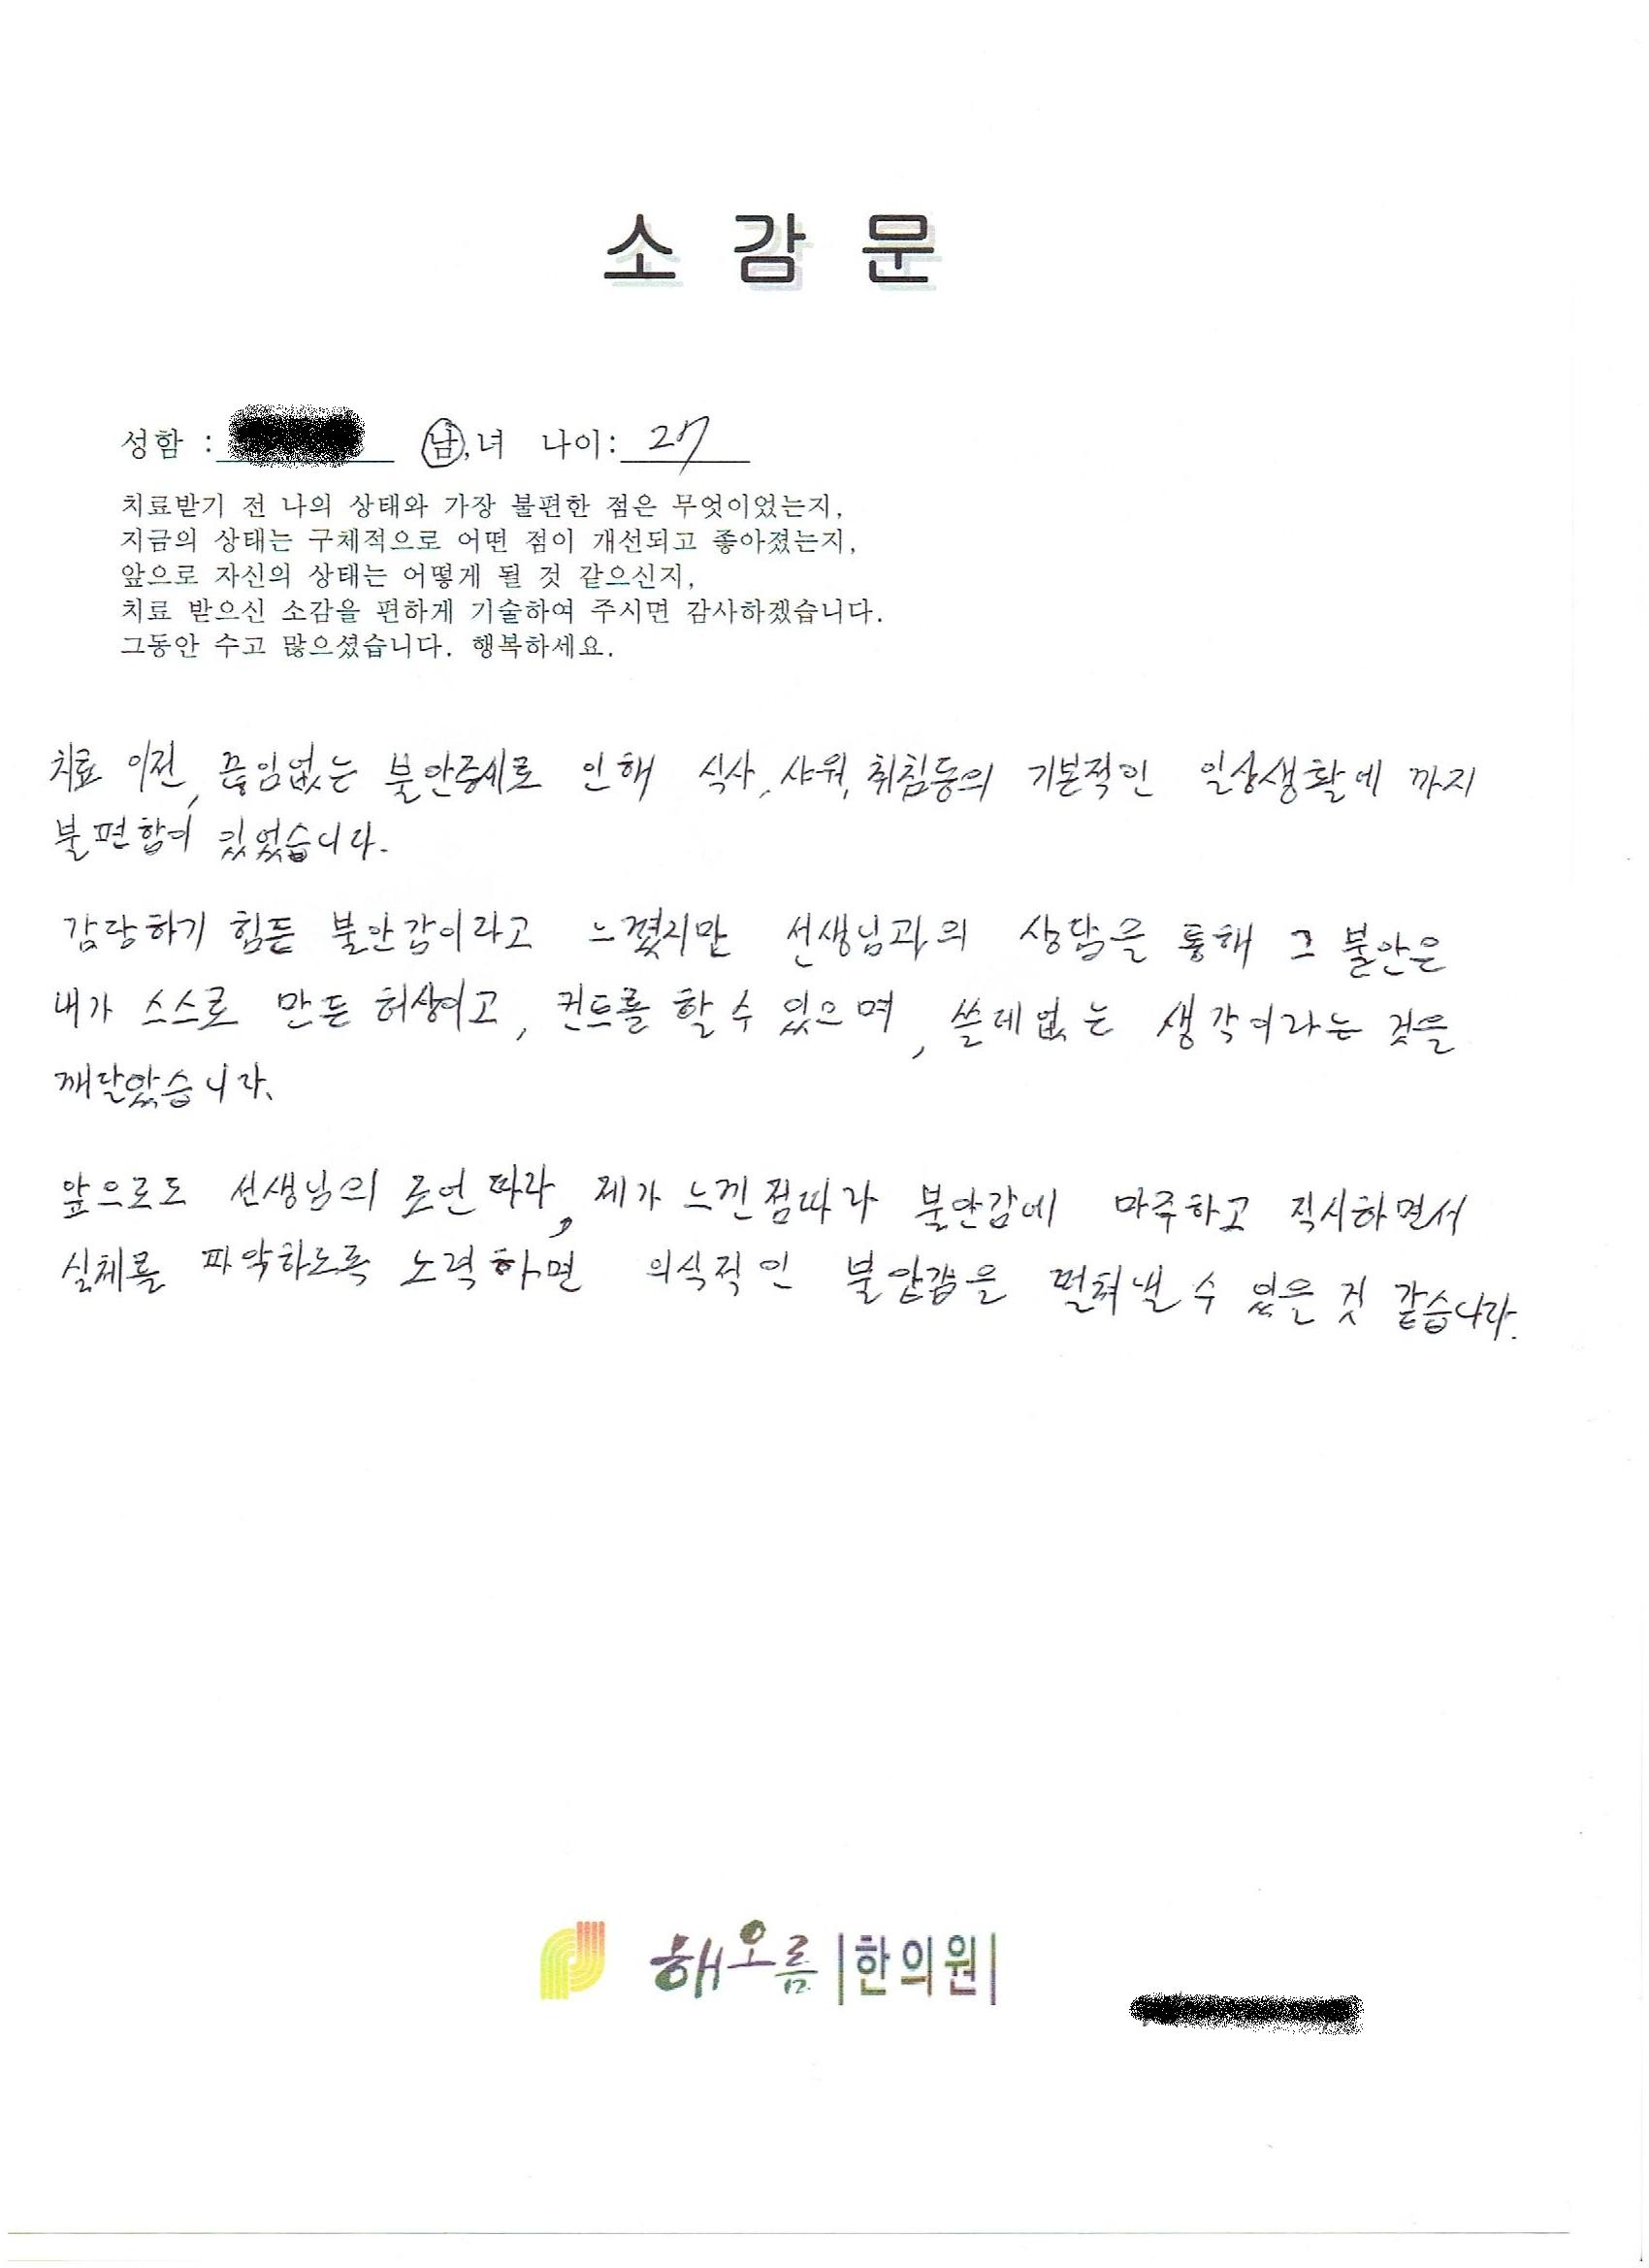 소 감 문
성함 : 남,녀 나이: 27
치료받기 전 나의 상태와 가장 불편한 점은 무엇이었는지,
지금의 상태는 구체적으로 어떤 점이 개선되고 좋아졌는지,
앞으로 자신의 상태는 어떻게 될 것 같으신지,
치료 받으신 소감을 편하게 기술하여 주시면 감사하겠습니다.
그동안 수고 많으셨습니다. 행복하세요.
치료 이전, 끊임없는 불안증세로 인해 식사, 샤워, 취침등의 기본적인 일상생활에 까지
불편함이 있었습니다.
감당하기 힘든 불안감이라고 느꼈지만 선생님과의 상담을 통해 그 불안은
내가 스스로 만든 허상이고, 컨트롤 할 수 있으며, 쓸데없는 생각이라는 것을
깨달았습니다.
앞으로도 선생님의 조언 따라, 제가 느낀점따라 불안감에 마주하고 직시하면서
실체를 파악하도록 노력하면 의식적인 불안감을 떨쳐낼 수 있을 것 같습니다.
해오름 |한의원|